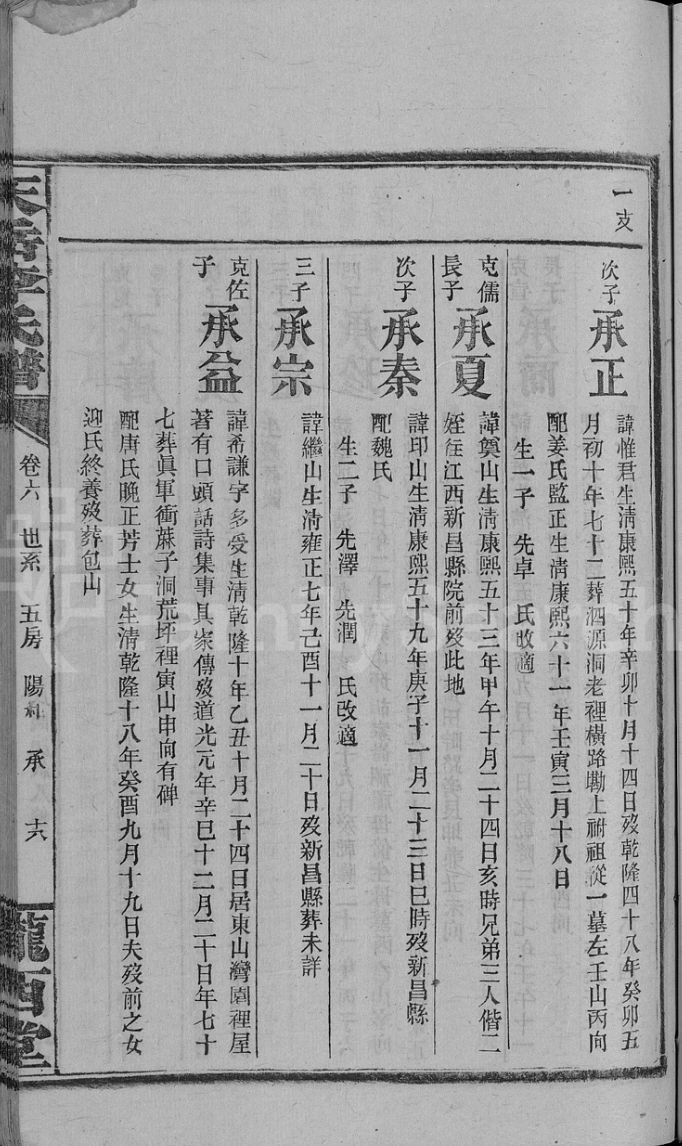 一支
次子
承正
諱惟君生淸康熙五十年辛卯十月十四日歿乾隆四十八年癸卯五
月初十年七十二葬泗源洞老裡橫路墈上祔祖從一墓左壬山丙向
配姜氏監正生淸康熙六十一年壬寅三月十八日
生一子 先卓 氏改適
克儒
長子
承夏
諱奠山生淸康熙五十三年甲午十月二十四日亥時兄弟三人偕二
姪往江西新昌縣院前歿此地
次子
承秦
諱印山生淸康熙五十九年庚子十一月二十三日巳時歿新昌縣
配魏氏
生二子 先澤 先潤 氏改適
三子
承宗
諱繼山生淸雍正七年己酉十一月二十日歿新昌縣葬未詳
克佐
子
承益
諱希謙字多受生淸乾隆十年乙丑十月二十四日居東山灣園裡屋
著有口頭話詩集事具家傳歿道光元年辛巳十二月二十日年七十
七葬眞軍衝蔴子洞荒坪裡寅山申向有碑
配唐氏晚正芳士女生淸乾隆十八年癸酉九月十九日夫歿前之女
迎氏終養歿葬包山
李氏譜
卷六 世系 五房 陽 承 十六
隴西堂